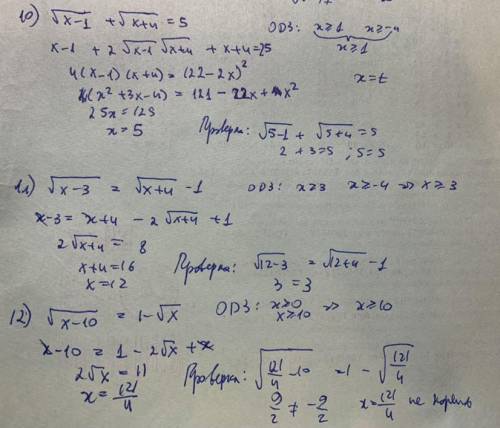 10) √(x-1) + √(x+4) = 5   ОДЗ: x≥1 x≥-4
x≥1
x-1 + 2√(x-1)√(x+4) + x+4 = 25
4(x-1)(x+4) = (22-2x)²
(x²+3x-4) = 121 - 22x + x²
x=t
25x = 125
x = 5
Проверка: √(5-1) + √(5+4) = 5
2+3=5 ; 5=5
11) √(x-3) = √(x+4) - 1   ОДЗ: x≥3 x≥-4 => x≥3
x-3 = x+4 - 2√(x+4) + 1
2√(x+4) = 8
x+4=16
x=12
Проверка: √(12-3) = √(12+4) - 1
3 = 3
12) √(x-10) = 1-√x   ОДЗ: x≥0 x≥10 => x≥10
x-10 = 1 - 2√x + x
2√x = 11
x = 121/4
Проверка: √(121/4 - 10) = 1 - √(121/4)
9/2 ≠ -9/2   x=121/4 не корень